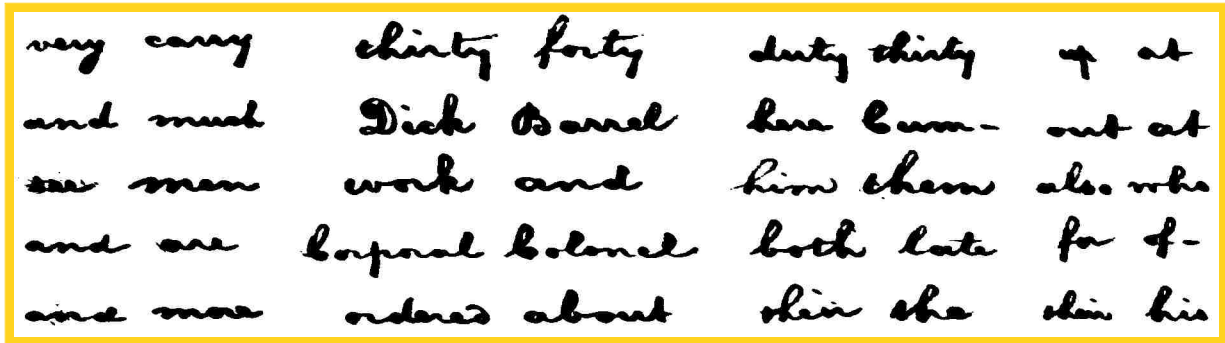 very carry thirty forty duty thirty up at
and much Dick Barrel here Cum- out at
men work and him them also who
and are Corporal Colonel both late for of-
and more ordered about their the their his